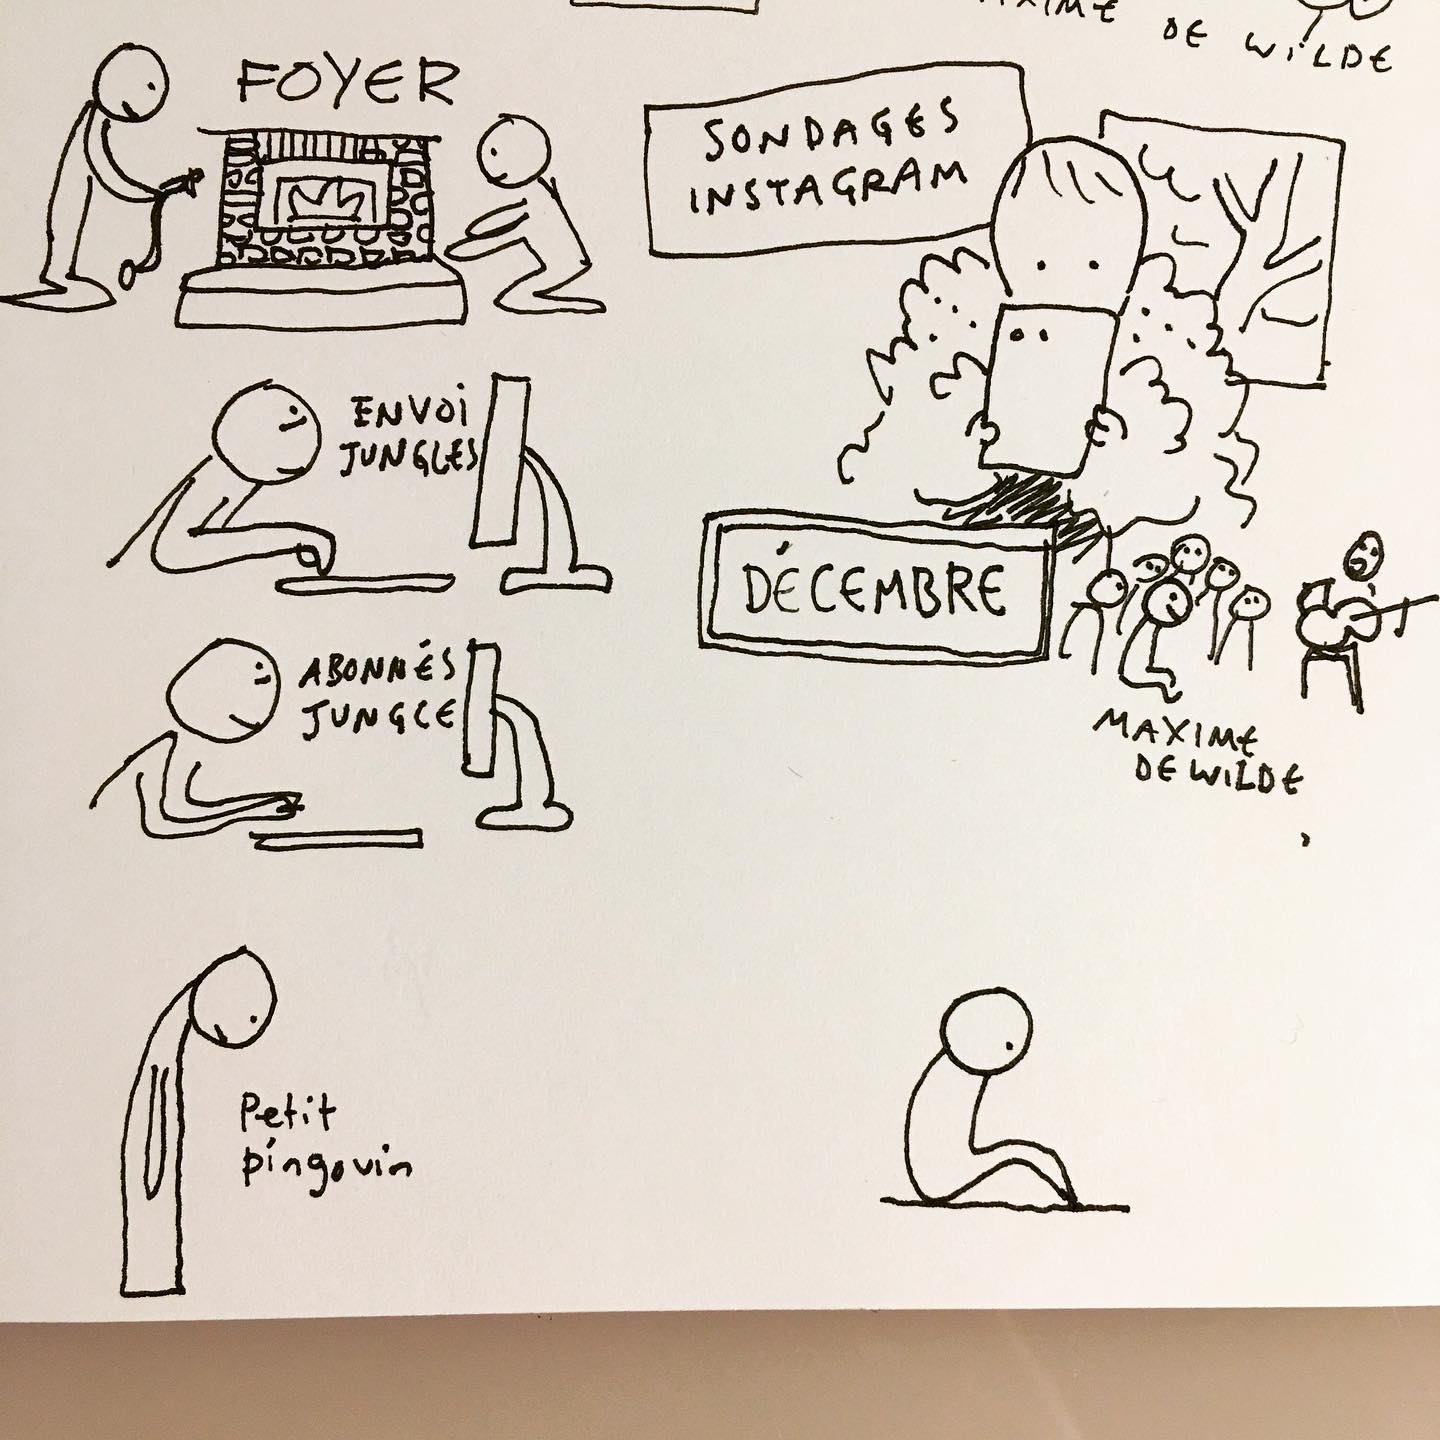 MAXIME DE WILDE
FOYER
SONDAGES
INSTAGRAM
ENVOI
JUNGLES
DÉCEMBRE
ABONNÉS
JUNGLE
MAXIME
DE WILDE
Petit
pingouin